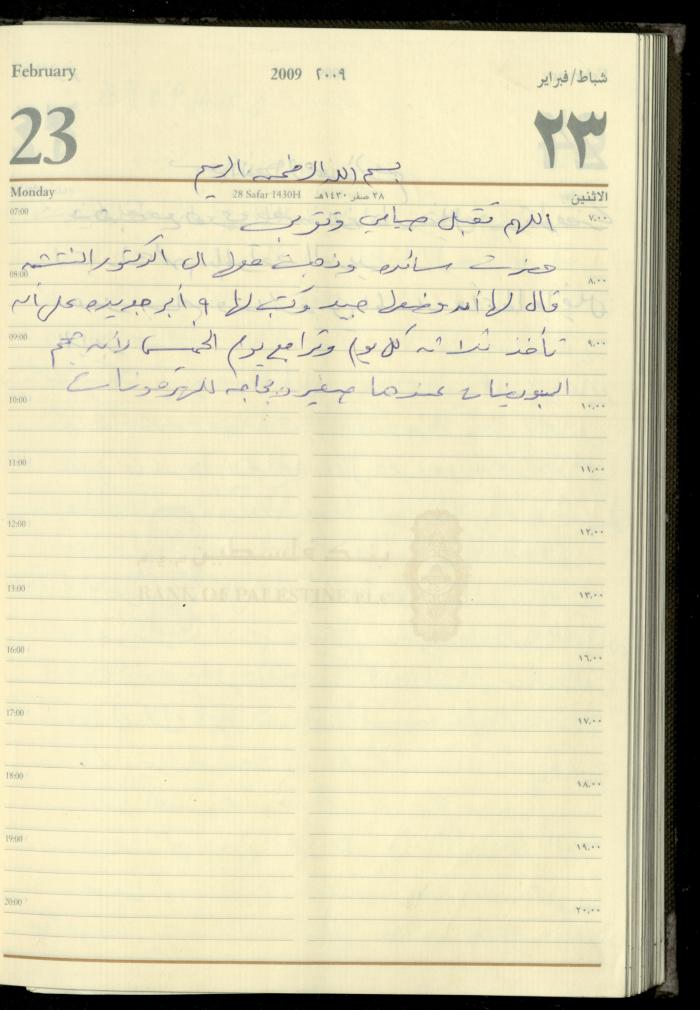 February 2009 ٢٠٠٩ شباط/فبراير
23 ٢٣
بسم الله الرحمن الرحيم
Monday 28 Safar 1430H ٢٨ صفر ١٤٣٠هـ الاثنين
07:00 ٧,٠٠
اللهم تقبل صيامي
حضرت سائده وذهبت معها الى الدكتور النتشه
08:00 ٨,٠٠
قال لها أنه وضعها جيد وكتب لها ٩ أبر جديده على أنه
09:00 ٩,٠٠
تأخذ ثلاثه كل يوم وتراجع يوم الخميس لأنه حجم
البويضات عندها صغير وبحاجه للهرمونات
10:00 ١٠,٠٠
11:00 ١١,٠٠
12:00 ١٢,٠٠
BANK OF PALESTINE PLC
13:00 ١٣,٠٠
16:00 ١٦,٠٠
17:00 ١٧,٠٠
18:00 ١٨,٠٠
19:00 ١٩,٠٠
20:00 ٢٠,٠٠